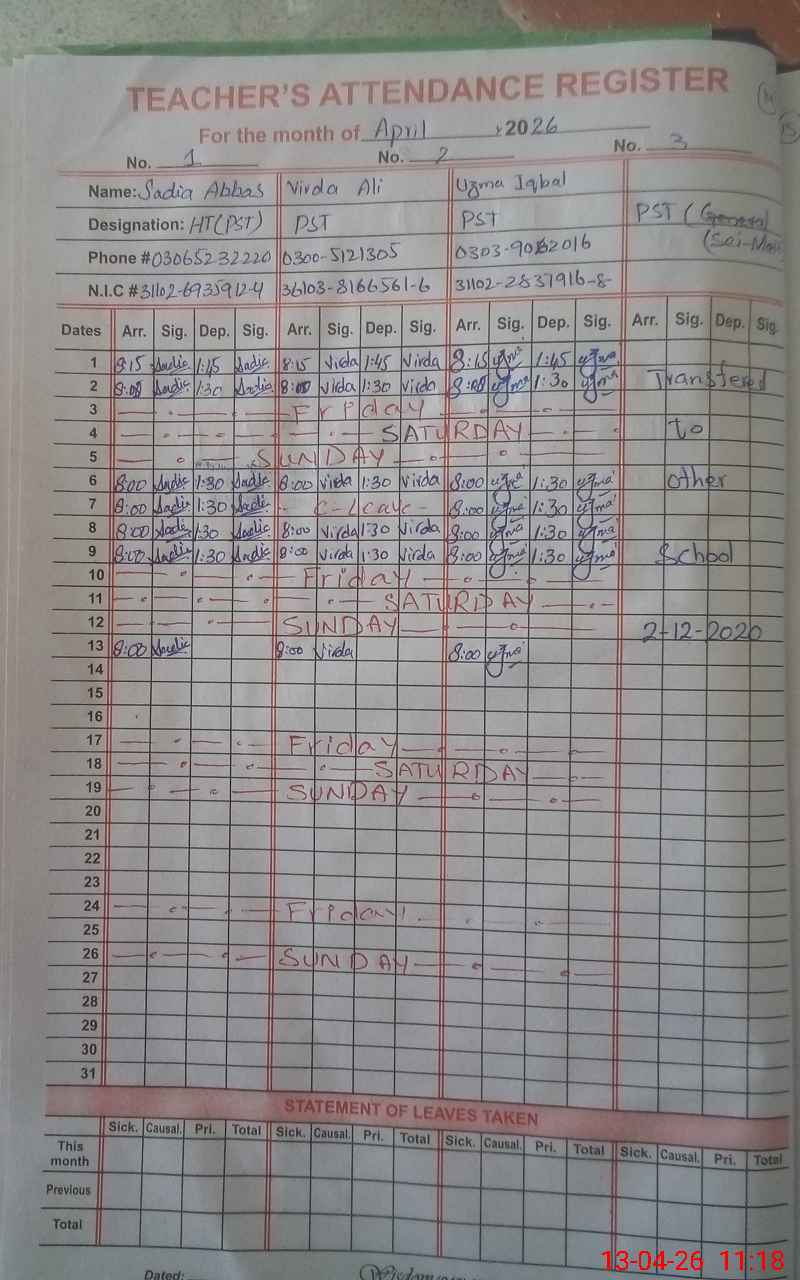 TEACHER'S ATTENDANCE REGISTER
For the month of April 2026
No. 1 No. 2 No. 3
Name: Sadia Abbas Virda Ali Uzma Iqbal
Designation: HT(PST) PST PST PST (General)
(Sci-Math)
Phone # 03065232220 0300-5121305 0303-9062016
N.I.C # 31102-6935912-4 36103-8166561-6 31102-2837916-8-
Dates Arr. Sig. Dep. Sig. Arr. Sig. Dep. Sig. Arr. Sig. Dep. Sig. Arr. Sig. Dep. Sig.
1 8:15 Sadia 1:45 Sadia 8:15 Virda 1:45 Virda 8:15 uzma 1:45 uzma
2 8:00 Sadia 1:30 Sadia 8:00 Virda 1:30 Virda 8:00 uzma 1:30 uzma Transfered
3 Friday
4 SATURDAY to
5 SUNDAY
6 8:00 Sadia 1:30 Sadia 8:00 Virda 1:30 Virda 8:00 uzma 1:30 uzma other
7 8:00 Sadia 1:30 Sadia - C-Leave - 8:00 uzma 1:30 uzma
8 8:00 Sadia 1:30 Sadia 8:00 Virda 1:30 Virda 8:00 uzma 1:30 uzma
9 8:00 Sadia 1:30 Sadia 8:00 Virda 1:30 Virda 8:00 uzma 1:30 uzma School
10 Friday
11 SATURDAY
12 SUNDAY 2-12-2020
13 8:00 Sadia 8:00 Virda 8:00 uzma
14
15
16
17 Friday
18 SATURDAY
19 SUNDAY
20
21
22
23
24 Friday
25
26 SUNDAY
27
28
29
30
31
STATEMENT OF LEAVES TAKEN
Sick. Causal. Pri. Total Sick. Causal. Pri. Total Sick. Causal. Pri. Total Sick. Causal. Pri. Total
This month
Previous
Total
Dated:
13-04-26 11:18